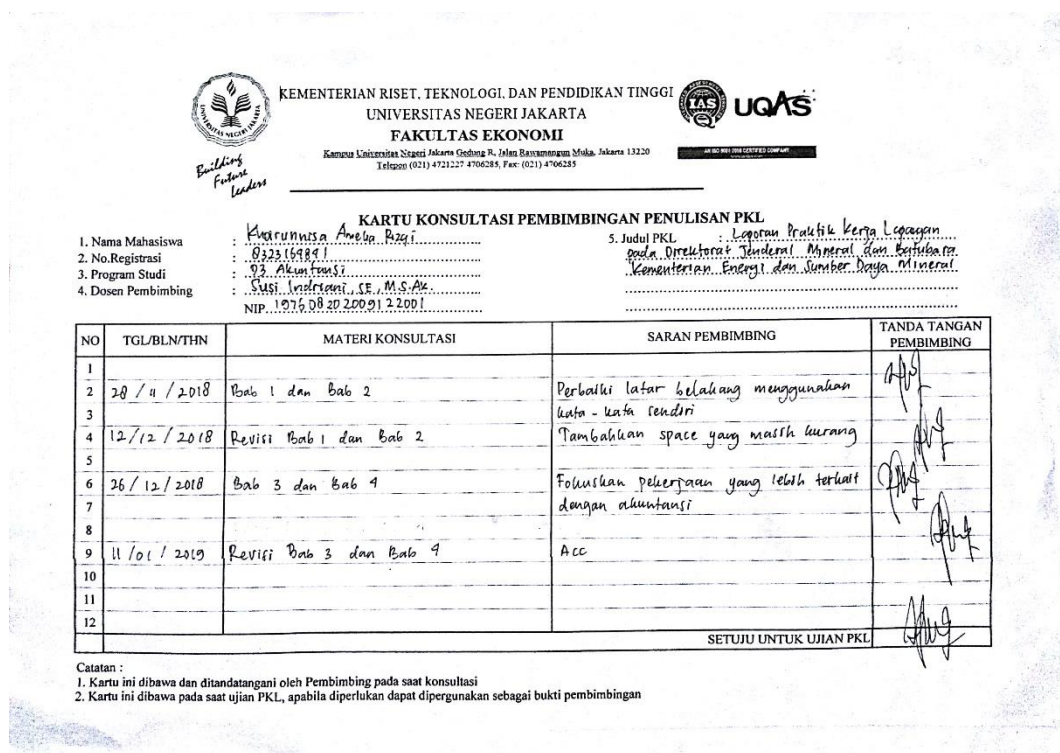 KEMENTERIAN RISET, TEKNOLOGI, DAN PENDIDIKAN TINGGI
UNIVERSITAS NEGERI JAKARTA
FAKULTAS EKONOMI
Kampus Universitas Negeri Jakarta Gedung R, Jalan Rawamangun Muka, Jakarta 13220
Telepon (021) 4721227 4706285, Fax: (021) 4706285
Building
Future
Leaders
IAS
UQAS
AN ISO 9001:2008 CERTIFIED COMPANY
KARTU KONSULTASI PEMBIMBINGAN PENULISAN PKL
1. Nama Mahasiswa : Khairunnisa Amelia Rizqi
2. No.Registrasi : 8323169891
3. Program Studi : D3 Akuntansi
4. Dosen Pembimbing : Susi Indriani, SE, M.S.Ak.
NIP. 197608202009122001
5. Judul PKL : Laporan Praktik Kerja Lapangan
pada Direktorat Jenderal Mineral dan Batubara
Kementerian Energi dan Sumber Daya Mineral
NO TGL/BLN/THN MATERI KONSULTASI SARAN PEMBIMBING TANDA TANGAN PEMBIMBING
1
2 28 / 11 / 2018 Bab 1 dan Bab 2 Perbaiki latar belakang menggunakan
3 kata - kata sendiri
4 12 / 12 / 2018 Revisi Bab 1 dan Bab 2 Tambahkan space yang masih kurang
5
6 26 / 12 / 2018 Bab 3 dan Bab 4 Fokuskan pekerjaan yang lebih terkait
7 dengan akuntansi
8
9 11 / 01 / 2019 Revisi Bab 3 dan Bab 4 Acc
10
11
12
SETUJU UNTUK UJIAN PKL
Catatan :
1. Kartu ini dibawa dan ditandatangani oleh Pembimbing pada saat konsultasi
2. Kartu ini dibawa pada saat ujian PKL, apabila diperlukan dapat dipergunakan sebagai bukti pembimbingan